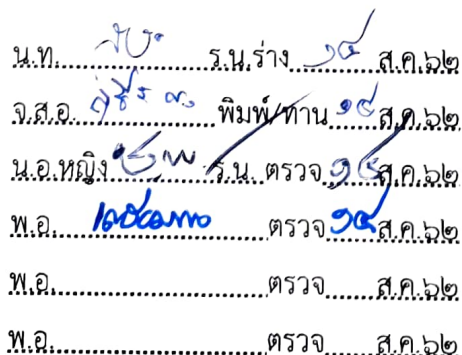 น.ท. ร.น.ร่าง ๑๔ ส.ค.๖๒
จ.ส.อ. พิมพ์/ทาน ๑๔ ส.ค.๖๒
น.อ.หญิง ร.น. ตรวจ ๑๔ ส.ค.๖๒
พ.อ. ตรวจ ๑๔ ส.ค.๖๒
พ.อ. ตรวจ ส.ค.๖๒
พ.อ. ตรวจ ส.ค.๖๒